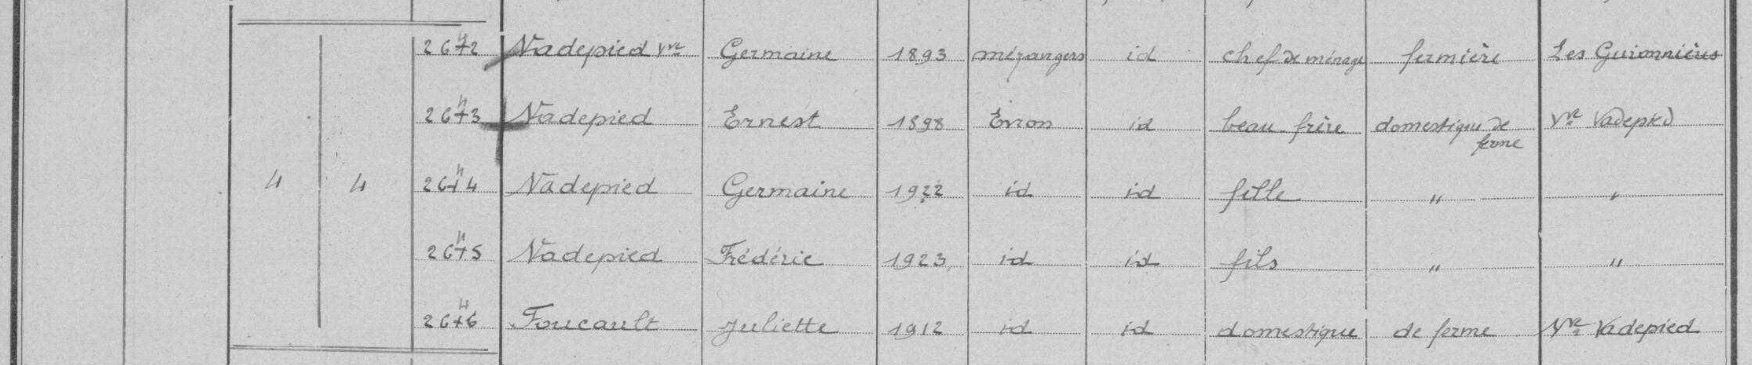 2642 Vadepied Vve Germaine 1893 mézangers id chef de ménage fermière Les Guionnières
2643 Vadepied Ernest 1898 Evron id beau frère domestique de ferme Vve Vadepied
4 4 2644 Vadepied Germaine 1922 id id fille " "
2645 Vadepied Frédéric 1923 id id fils " "
2646 Foucault Juliette 1912 id id domestique de ferme Vve Vadepied